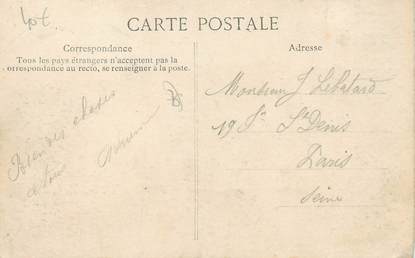 40€
CARTE POSTALE
Correspondance
Tous les pays étrangers n'acceptent pas la
correspondance au recto, se renseigner à la poste.
Adresse
Bien des choses
à tous
Monsieur J Lebatard
19 St Denis
Paris
Seine